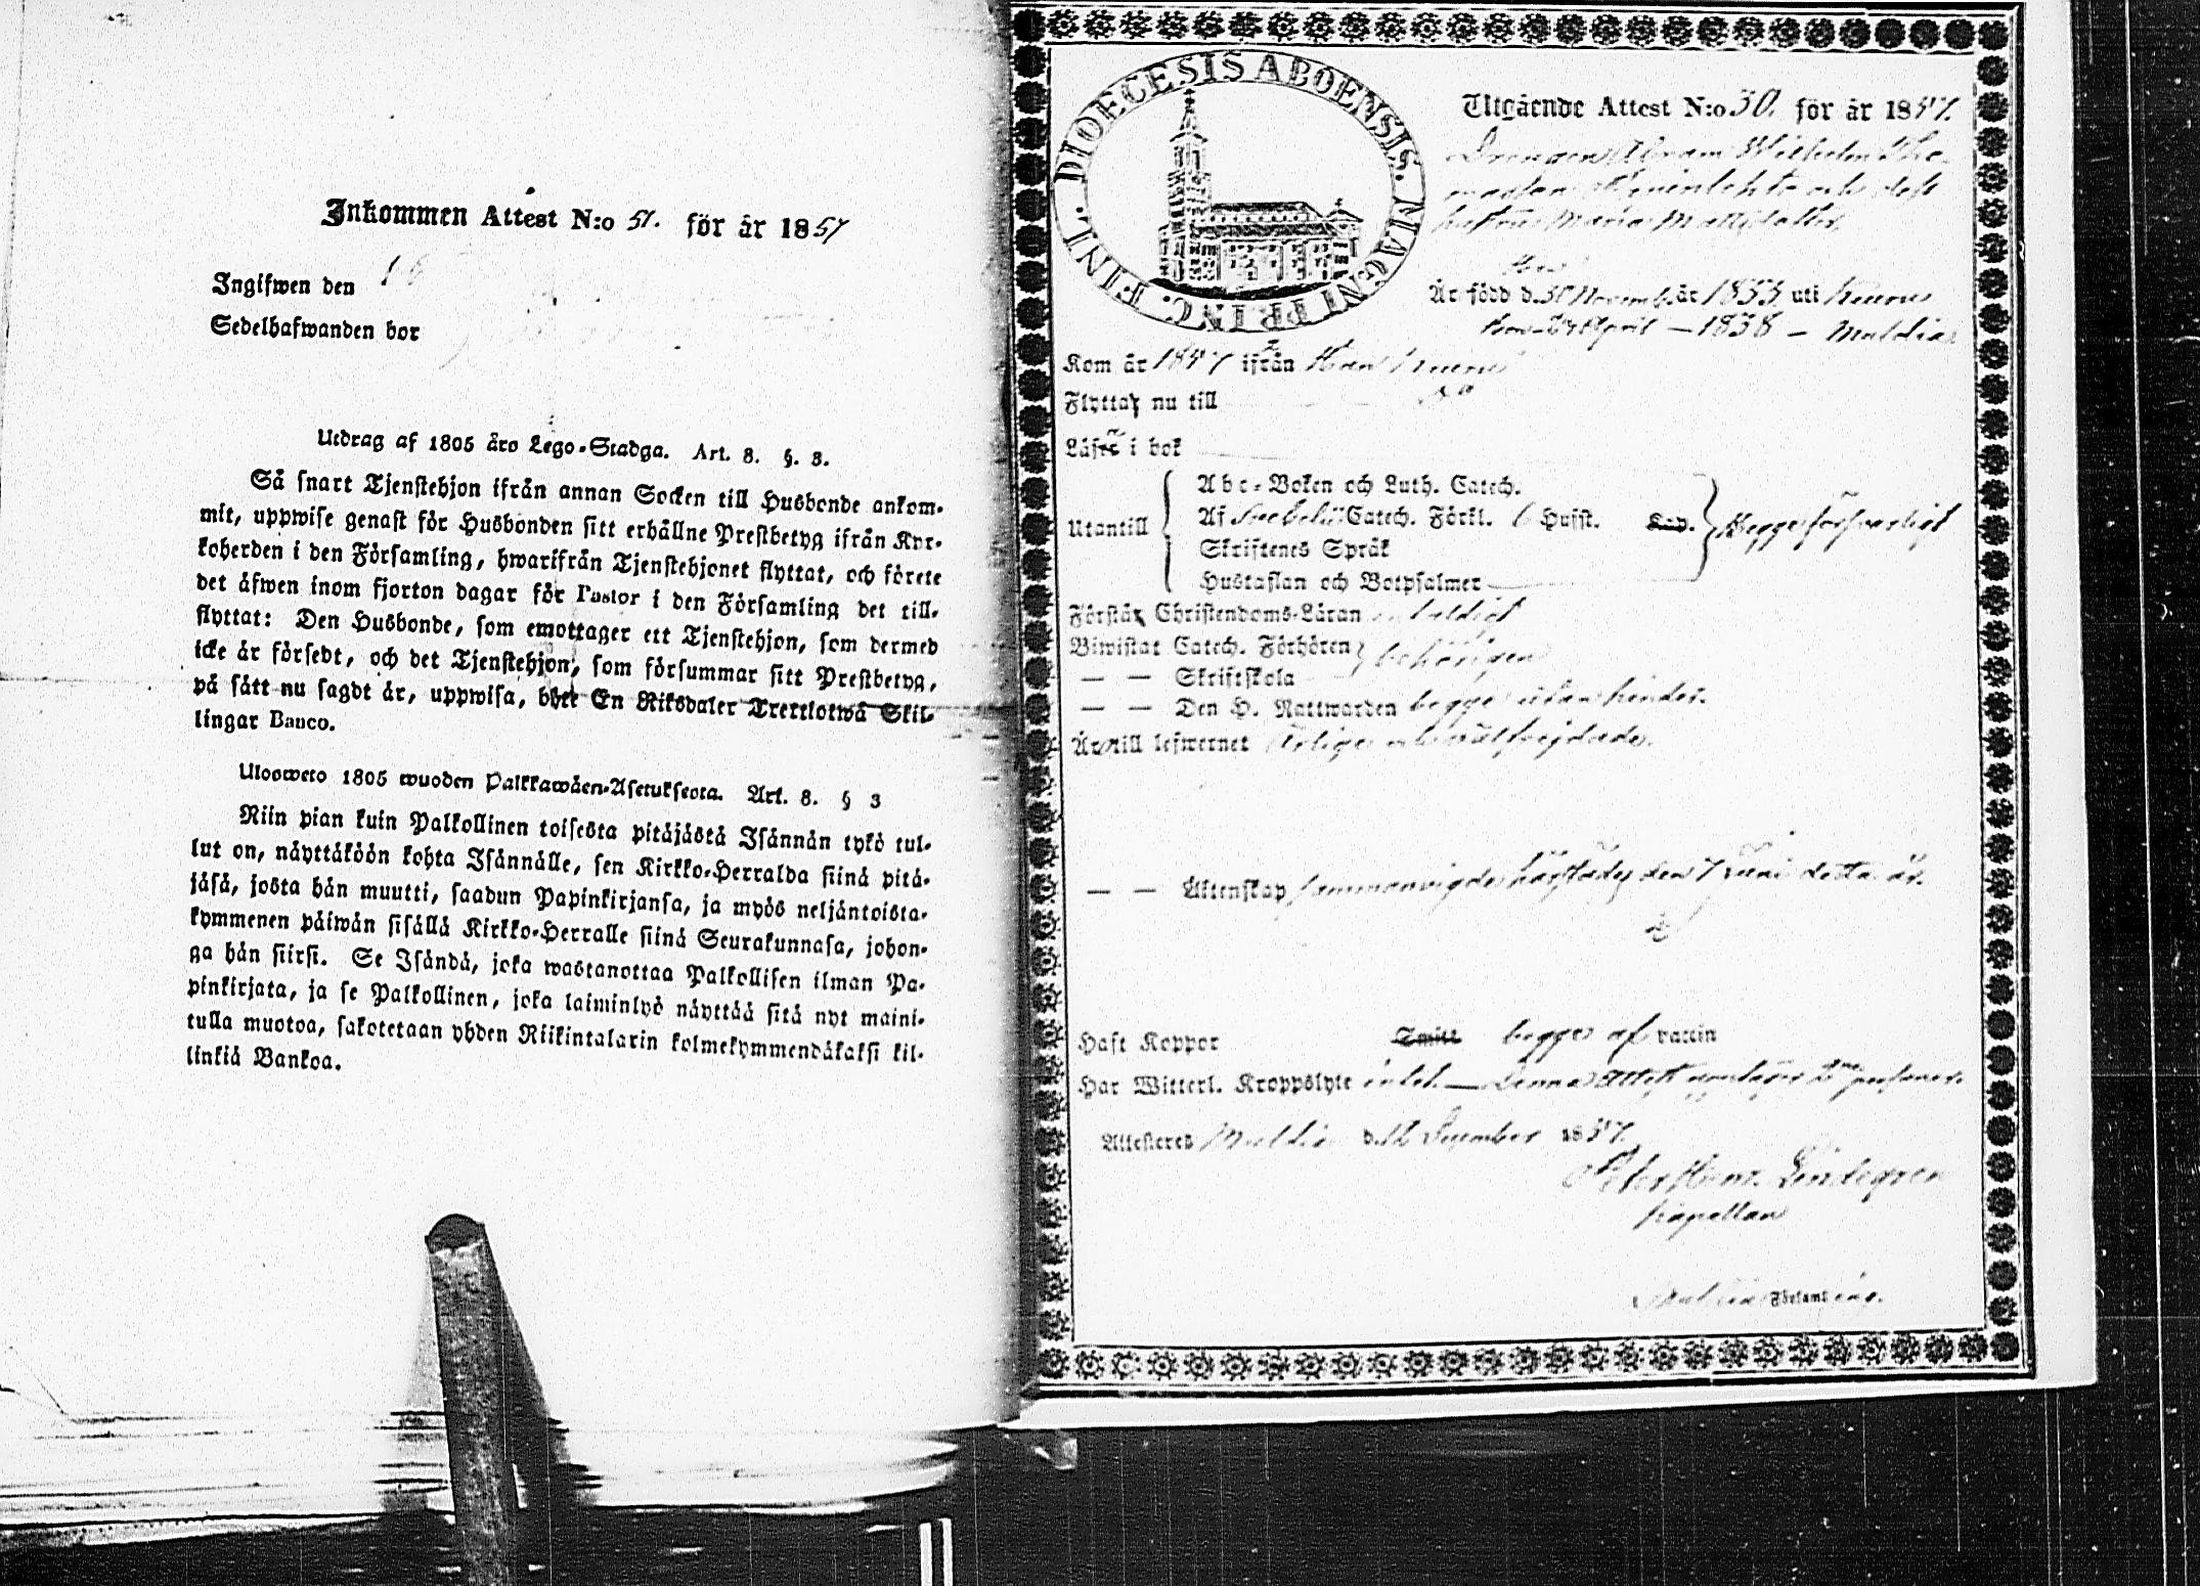 Inkommen Attest N:o 51. för år 1857
Ingifwen den 16
Sedelhafwanden bor
Utdrag af 1805 års Lego-Stadga. Art. 8. §. 3.
Så snart Tjenstehjon ifrån annan Socken till Husbonde ankom-
mit, uppwise genast för Husbonden sitt erhållne Prestbetyg ifrån Kyr-
koherden i den Församling, hwarifrån Tjenstehjonet flyttat, och förete
det äfwen inom fjorton dagar för Pastor i den Församling det till-
flyttat: Den Husbonde, som emottager ett Tjenstehjon, som dermed
icke är försedt, och det Tjenstehjon, som försummar sitt Prestbetyg,
på sätt nu sagdt är, uppwisa, böte En Riksdaler Trettiotwå Skil-
lingar Banco.
Uloswеto 1805 wuoden Palkkawäen-Asetuksesta. Art. 8. § 3
Niin pian kuin Palkollinen toisesta pitäjästä Isännän tykö tul-
lut on, näyttäköön kohta Isännälle, sen Kirkko-Herralda siinä pitä-
jäsä, josta hän muutti, saadun Papinkirjansa, ja myös neljäntoista-
kymmenen päiwän sisällä Kirkko-Herralle siinä Seurakunnasa, johon-
ga hän siirsi. Se Isändä, joka wastanottaa Palkollisen ilman Pa-
pinkirjata, ja se Palkollinen, joka laiminlyö näyttää sitä nyt maini-
tulla muotoa, sakotetaan yhden Riikintalarin kolmekymmendäkaksi kil-
linkiä Bankoa.
DIOECESIS ABOENSIS. MAGNI PRINC. FINL.
Utgående Attest N:o 30. för år 1857.
Drengen Abram Wilhelm Tho-
masson och dess
hustru Maria Mattsdotter,
Är född d. 30 Novemb. år 1833 uti Kiuru
April — 1838 — Muldia
Kom år 1857 ifrån Kiuru
Flyttar nu till
Läser i bok
Utantill
Abc-Boken och Luth. Catech.
Af Svebelii Catech. Förkl. 6 Hufst. Kap. Begge försvarligt
Skriftenes Språk
Hustaflan och Botpsalmer
Förstår Christendoms-Läran
Biwistat Catech. Förhören behörigen
— — Skriftskola
— — Den H. Nattwarden begge utan hinder.
Är till lefwernet ärlige och wälfrejdade.
— — Äktenskap sammanvigde härstädes den 7 Juni detta år.
Haft Koppor Smitt begge af vaccin
Har Witterl. Kroppslyte intet. — Denna Attest upptager två personer.
Attesteras Muldia d. 12 December 1857.
Peter Henr. Lindegren
Kapellan
Muldia Församling.